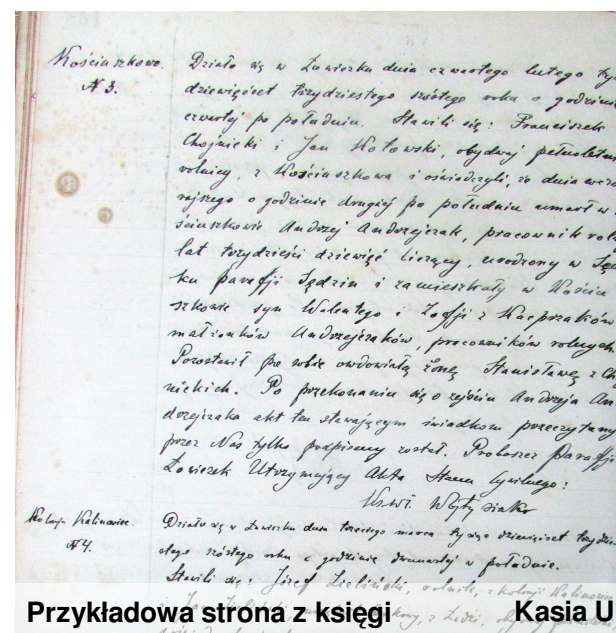 Kościuszkowo.
№ 3.
Działo się w Łowiczku dnia czwartego lutego ty
dziewięćset trzydziestego szóstego roku o godzinie
czwartej po południu. Stawili się: Franciszek
Chojnicki i Jan Kotowski, obydwaj pełnoletni
rolnicy, z Kościuszkowa i oświadczyli, że dnia wczo
rajszego o godzinie drugiej po południu umarł w
ściuszkowie Andrzej Andrzejczak, pracownik rol
lat trzydzieści dziewięć liczący, urodzony w Sę
ku parafji Sędzin i zamieszkały w Kościu
szkowie syn Walentego i Zofji z Kacprzaków
małżonków Andrzejczaków, pracowników rolnych.
Pozostawił po sobie owdowiałą żonę Stanisławę z Ch
nickich. Po przekonaniu się o zejściu Andrzeja An
drzejczaka akt ten stawającym świadkom przeczytany
przez Nas tylko podpisany został. Proboszcz parafji
Łowiczek Utrzymujący Akta Stanu Cywilnego:
Kolonja Kalinowiec.
№ 4.
Działo się w Łowiczku dnia trzeciego marca tysiąc dziewięćset trzydzie
stego szóstego roku o godzinie dwunastej w południe.
Stawili się: Józef Zieliński, rolnik, z kolonji Kalinowiec
Przykładowa strona z księgi
Kasia U